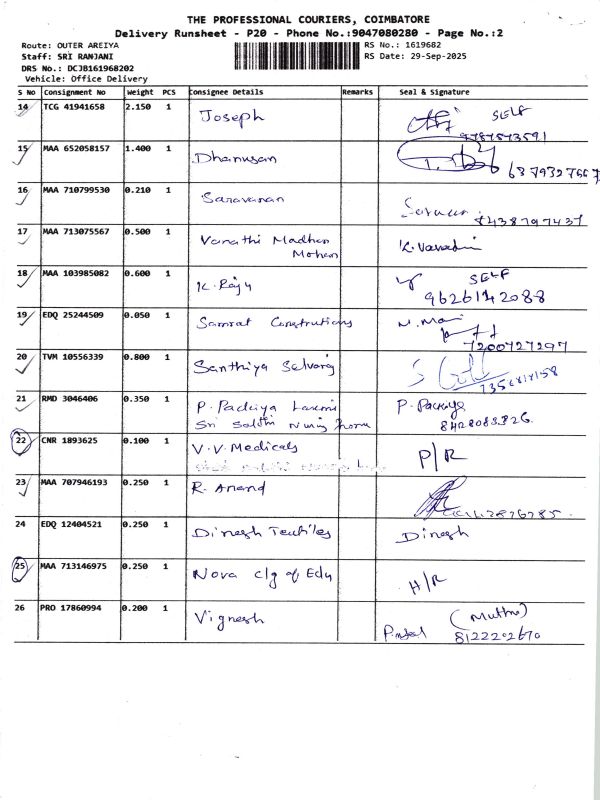 THE PROFESSIONAL COURIERS, COIMBATORE
Delivery Runsheet - P20 - Phone No.:9047080280 - Page No.:2
Route: OUTER AREIYA
RS No.: 1619682
Staff: SRI RANJANI
RS Date: 29-Sep-2025
DRS No.: DCJB161968202
Vehicle: Office Delivery
S No Consignment No Weight PCS Consignee Details Remarks Seal & Signature
14 TCG 41941658 2.150 1 Joseph SELF
9787873591
15 MAA 652058157 1.400 1 Dhanusan
16 MAA 710799530 0.210 1 Saravanan
7438797437
17 MAA 713075567 0.500 1 Vanathi Madhan
Mohan
18 MAA 103985082 0.600 1 K. Raju SELF
9626142088
19 EDQ 25244509 0.050 1 Samrat Construtions N. Mani
7200727297
20 TVM 10556339 0.800 1 Santhiya Selvaraj
21 RMD 3046406 0.350 1 P. Packiya Laxmi P. Packiya
Sri Sakthi Nursing home
22 CNR 1893625 0.100 1 V.V. Medicals P/R
23 MAA 707946193 0.250 1 R. Anand
24 EDQ 12404521 0.250 1 Dinesh Textiles Dinesh
25 MAA 713146975 0.250 1 Nova clg of Edu H/R
26 PRO 17860994 0.200 1 Vignesh (Muthu)
8122202670